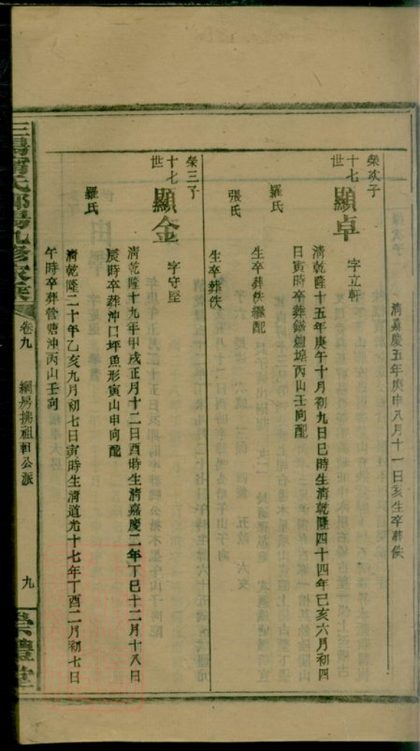 清嘉慶五年庚申八月十一日亥生卒葬佚
榮次子
十七世
顯卓
字立軒
清乾隆十五年庚午十月初九日巳時生清乾隆四十四年己亥六月初四
日寅時卒葬
丙山壬向配
羅氏
生卒葬佚繼配
張氏
生卒葬佚
榮三子
十七世
顯金
字守堅
清乾隆十九年甲戌正月十二日酉時生清嘉慶二年丁巳十二月十八日
辰時卒葬沖口坪魚形寅山申向配
羅氏
清乾隆二十年乙亥九月初七日寅時生清道光十七年丁酉二月初七日
午時卒葬管塘沖丙山壬向
卷九
祖輯公派
九